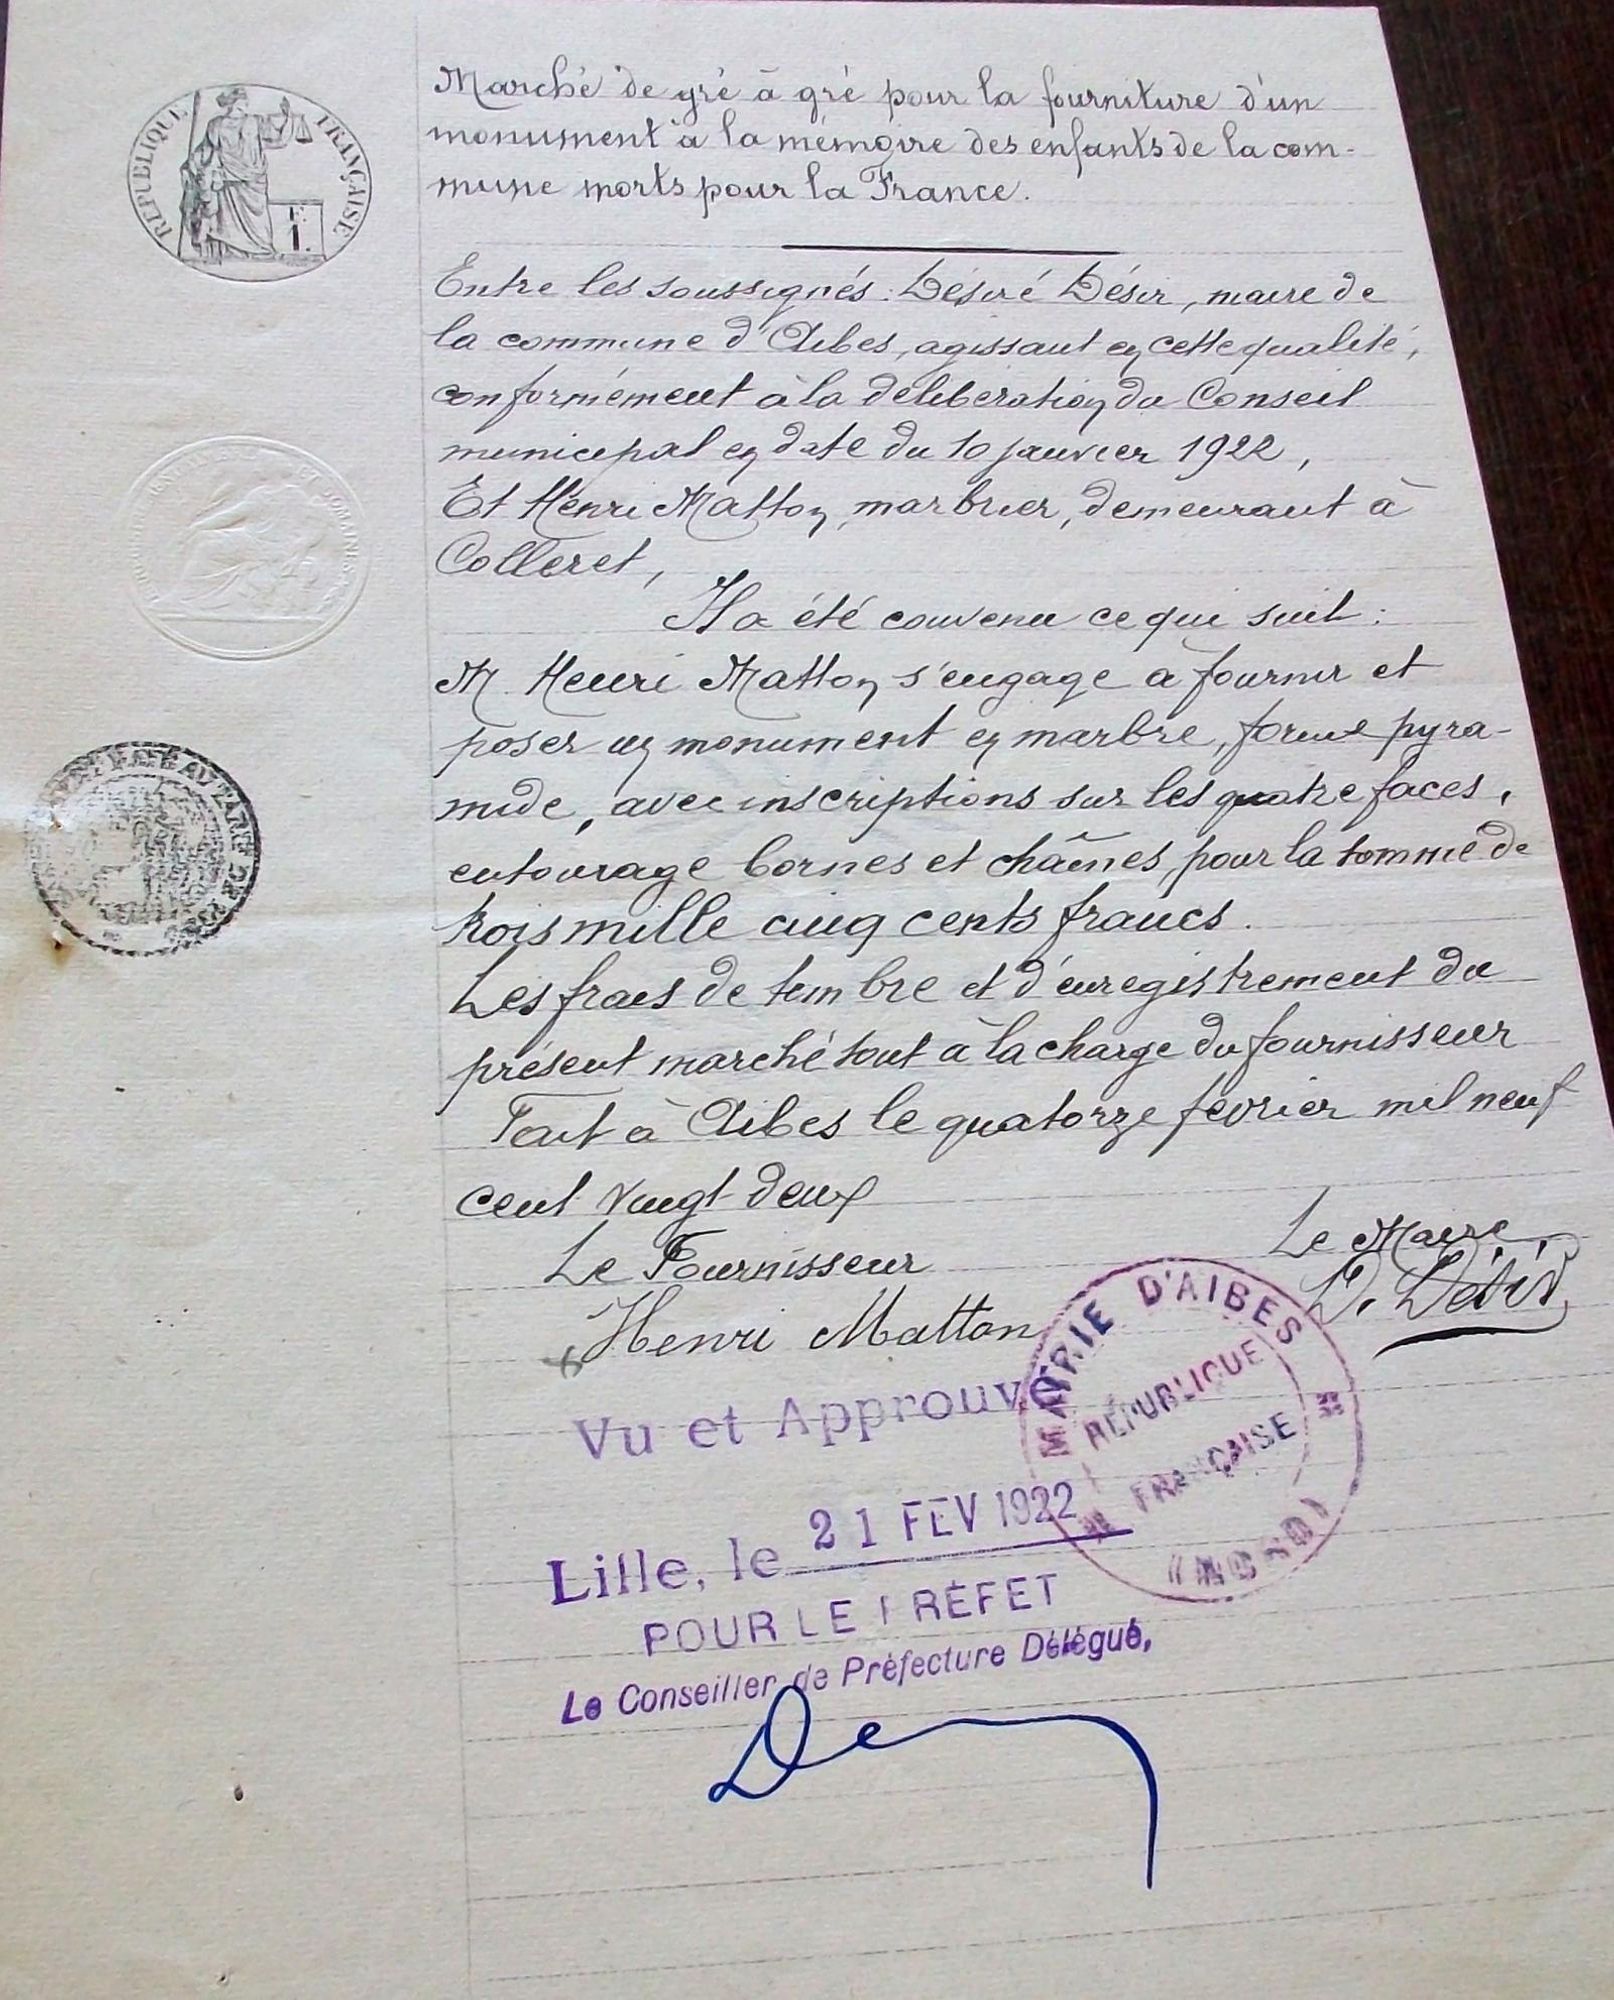 Marché de gré à gré pour la fourniture d'un
monument à la mémoire des enfants de la com-
mune morts pour la France.
RÉPUBLIQUE FRANÇAISE
1 F.
Entre les soussignés : Désiré Désir, maire de
la commune d'Aibes, agissant en cette qualité,
conformément à la délibération du Conseil
municipal en date du 10 janvier 1922,
Et Henri Matton, marbrier, demeurant à
Colleret,
Il a été convenu ce qui suit :
M. Henri Matton s'engage à fournir et
poser un monument en marbre, forme pyra-
mide, avec inscriptions sur les quatre faces,
entourage bornes et chaînes, pour la somme de
trois mille cinq cents francs.
Les frais de timbre et d'enregistrement du
présent marché sont à la charge du fournisseur
Fait à Aibes le quatorze février mil neuf
cent vingt deux
Le Fournisseur
Le Maire
Henri Matton
D. Désir
MAIRIE D'AIBES
RÉPUBLIQUE
FRANÇAISE
(NORD)
Vu et Approuvé
Lille, le 21 FEV 1922
POUR LE PREFET
Le Conseiller de Préfecture Délégué,